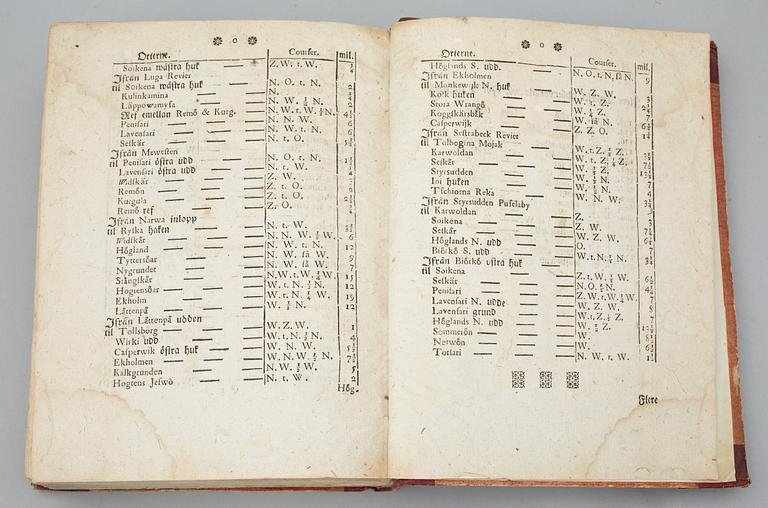 o
Orterne. Courser. mil.
Soikena wästra huk Z. W. t. W.
Ifrån Luga Revier
til Soikena wästra huk N. O. t. N.
Kulinkamina N.
Läppowamysa N. W. ½ N.
Ref emellan Remö & Kurg. N. W. t. W. ½ N. 4½
Penisari N. N. W. 6
Lavensari N. W. t. N. 6
Seskär N. t. O.
Ifrån Mewesten
til Penisari östra udd N. O. t. N.
Lavensari östra udd N. t. W.
Widskär Z. W.
Remön Z. t. O.
Kurgula Z. t. O.
Remö ref Z. O.
Ifrån Narwa inlopp
til Ryska haken N. t. W.
Widskär N. N. W. ½ W. 6
Högland N. W. t. N. 12
Tyttersöar N. W. så W. 9
Nygrundet N. W. så W. 7
Stängskär N. W. t. W. 15
Hogiensöar W. t. N. ½ N. 12
Ekholm W. t. N. 19
Låttenpå W. ½ N. 12
Ifrån Låttenpå udden
til Tollsborg W. Z. W. 1
Wirki udd W. t. N. ½ N. 4
Casperwik östra huk W. N. W. 5½
Ekholmen W. N. W. ½ N. 7½
Kalkgrunden N. W. ½ W. 5
Hogtens Jeswö N. t. W. 2
Hög-
o
Orterne. Courser. mil.
Höglands S. udd. N. O. t. N. så N. 9
Ifrån Ekholmen
til Monkewijk N. huk W. Z. W. 3
Kolk huken W. t. Z.
Stora Wrangö W. Z. 7
Koggskärsbåk W. så N.
Casperwijk Z. Z. O.
Ifrån Sestrabeck Revier
til Tolbogina Mojak W. t. Z. ½ Z.
Karwoldan W. t. Z. Z.
Seskär W. Z.
Styrsudden W. N. 7
Ini huken W. ½ N. 4
Tschiorna Reka W. N. W.
Ifrån Styrsudden Puselaby
til Karwoldan Z. 3
Soikena Z. W.
Seskär W. Z. W.
Höglands N. udd O.
Biörkö S. udd W. t. N. ½ N.
Ifrån Biörkö östra huk
til Soikena Z. t. W. ½ W. 6½
Seskär N. O. ½ N.
Penisari Z. W. t. W. ½ W. 7
Lavensari N. udde W. Z. W. 8
Lavensari grund W. t. Z. ½ Z. 7
Höglands N. udd W. ½ Z.
Sommerön W.
Nerwön W.
Totsari N. W. t. W.
Flere